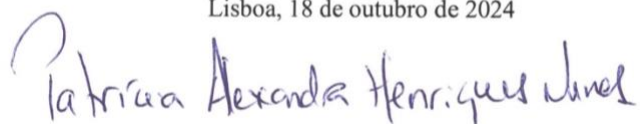 Lisboa, 18 de outubro de 2024
Patrícia Alexandra Henriques Nunes